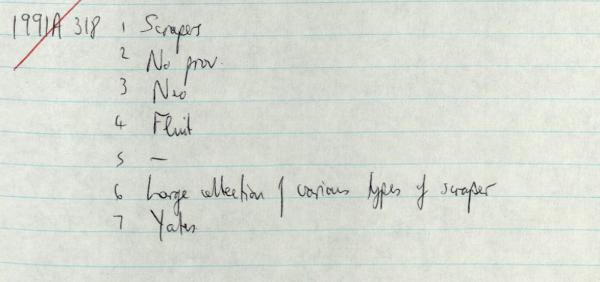 1991A 318 1 Scrapers
2 No prov.
3 Neo
4 Flint
5 —
6 Large collection of various types of scraper
7 Yates